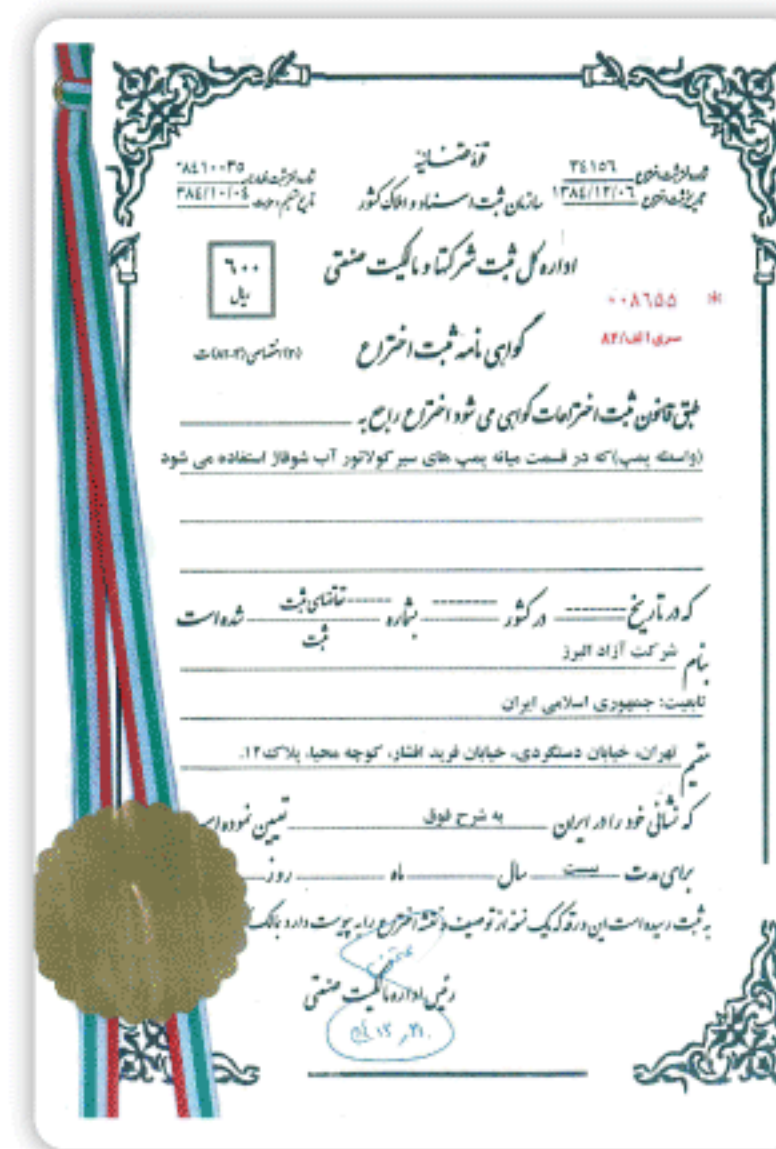 قوه قضائیه
شماره ثبت اختراع ۳۴۱۵۶
تاریخ ثبت اختراع ۱۳۸۴/۱۲/۰۶
سازمان ثبت اسناد و املاک کشور
شماره ثبت اظهارنامه ۳۸۴۱۰۰۳۵
۳۸۴/۱۰/۰۴
اداره کل ثبت شرکتها و مالکیت صنعتی
۶۰۰
ریال
* ۰۰۸۶۵۵
سری الف/۸۲
گواهی نامه ثبت اختراع
طبق قانون ثبت اختراعات گواهی می شود اختراع راجع به
(واسطه پمپ)که در قسمت میانه پمپ های سیرکولاتور آب شوفاژ استفاده می شود
که در تاریخ -------- در کشور -------- بشماره -------- تقاضای ثبت شده است
ثبت
بنام شرکت آزاد البرز
تابعیت: جمهوری اسلامی ایران
مقیم تهران، خیابان دستگردی، خیابان فرید افشار، کوچه محیا، پلاک۱۲.
که نشانی خود را در ایران به شرح فوق تعیین نموده
برای مدت بیست سال ماه روز
به ثبت رسیده است این ورقه که یک نسخه از توصیف و نقشه اختراع را به پیوست دارد
رئیس اداره مالکیت صنعتی